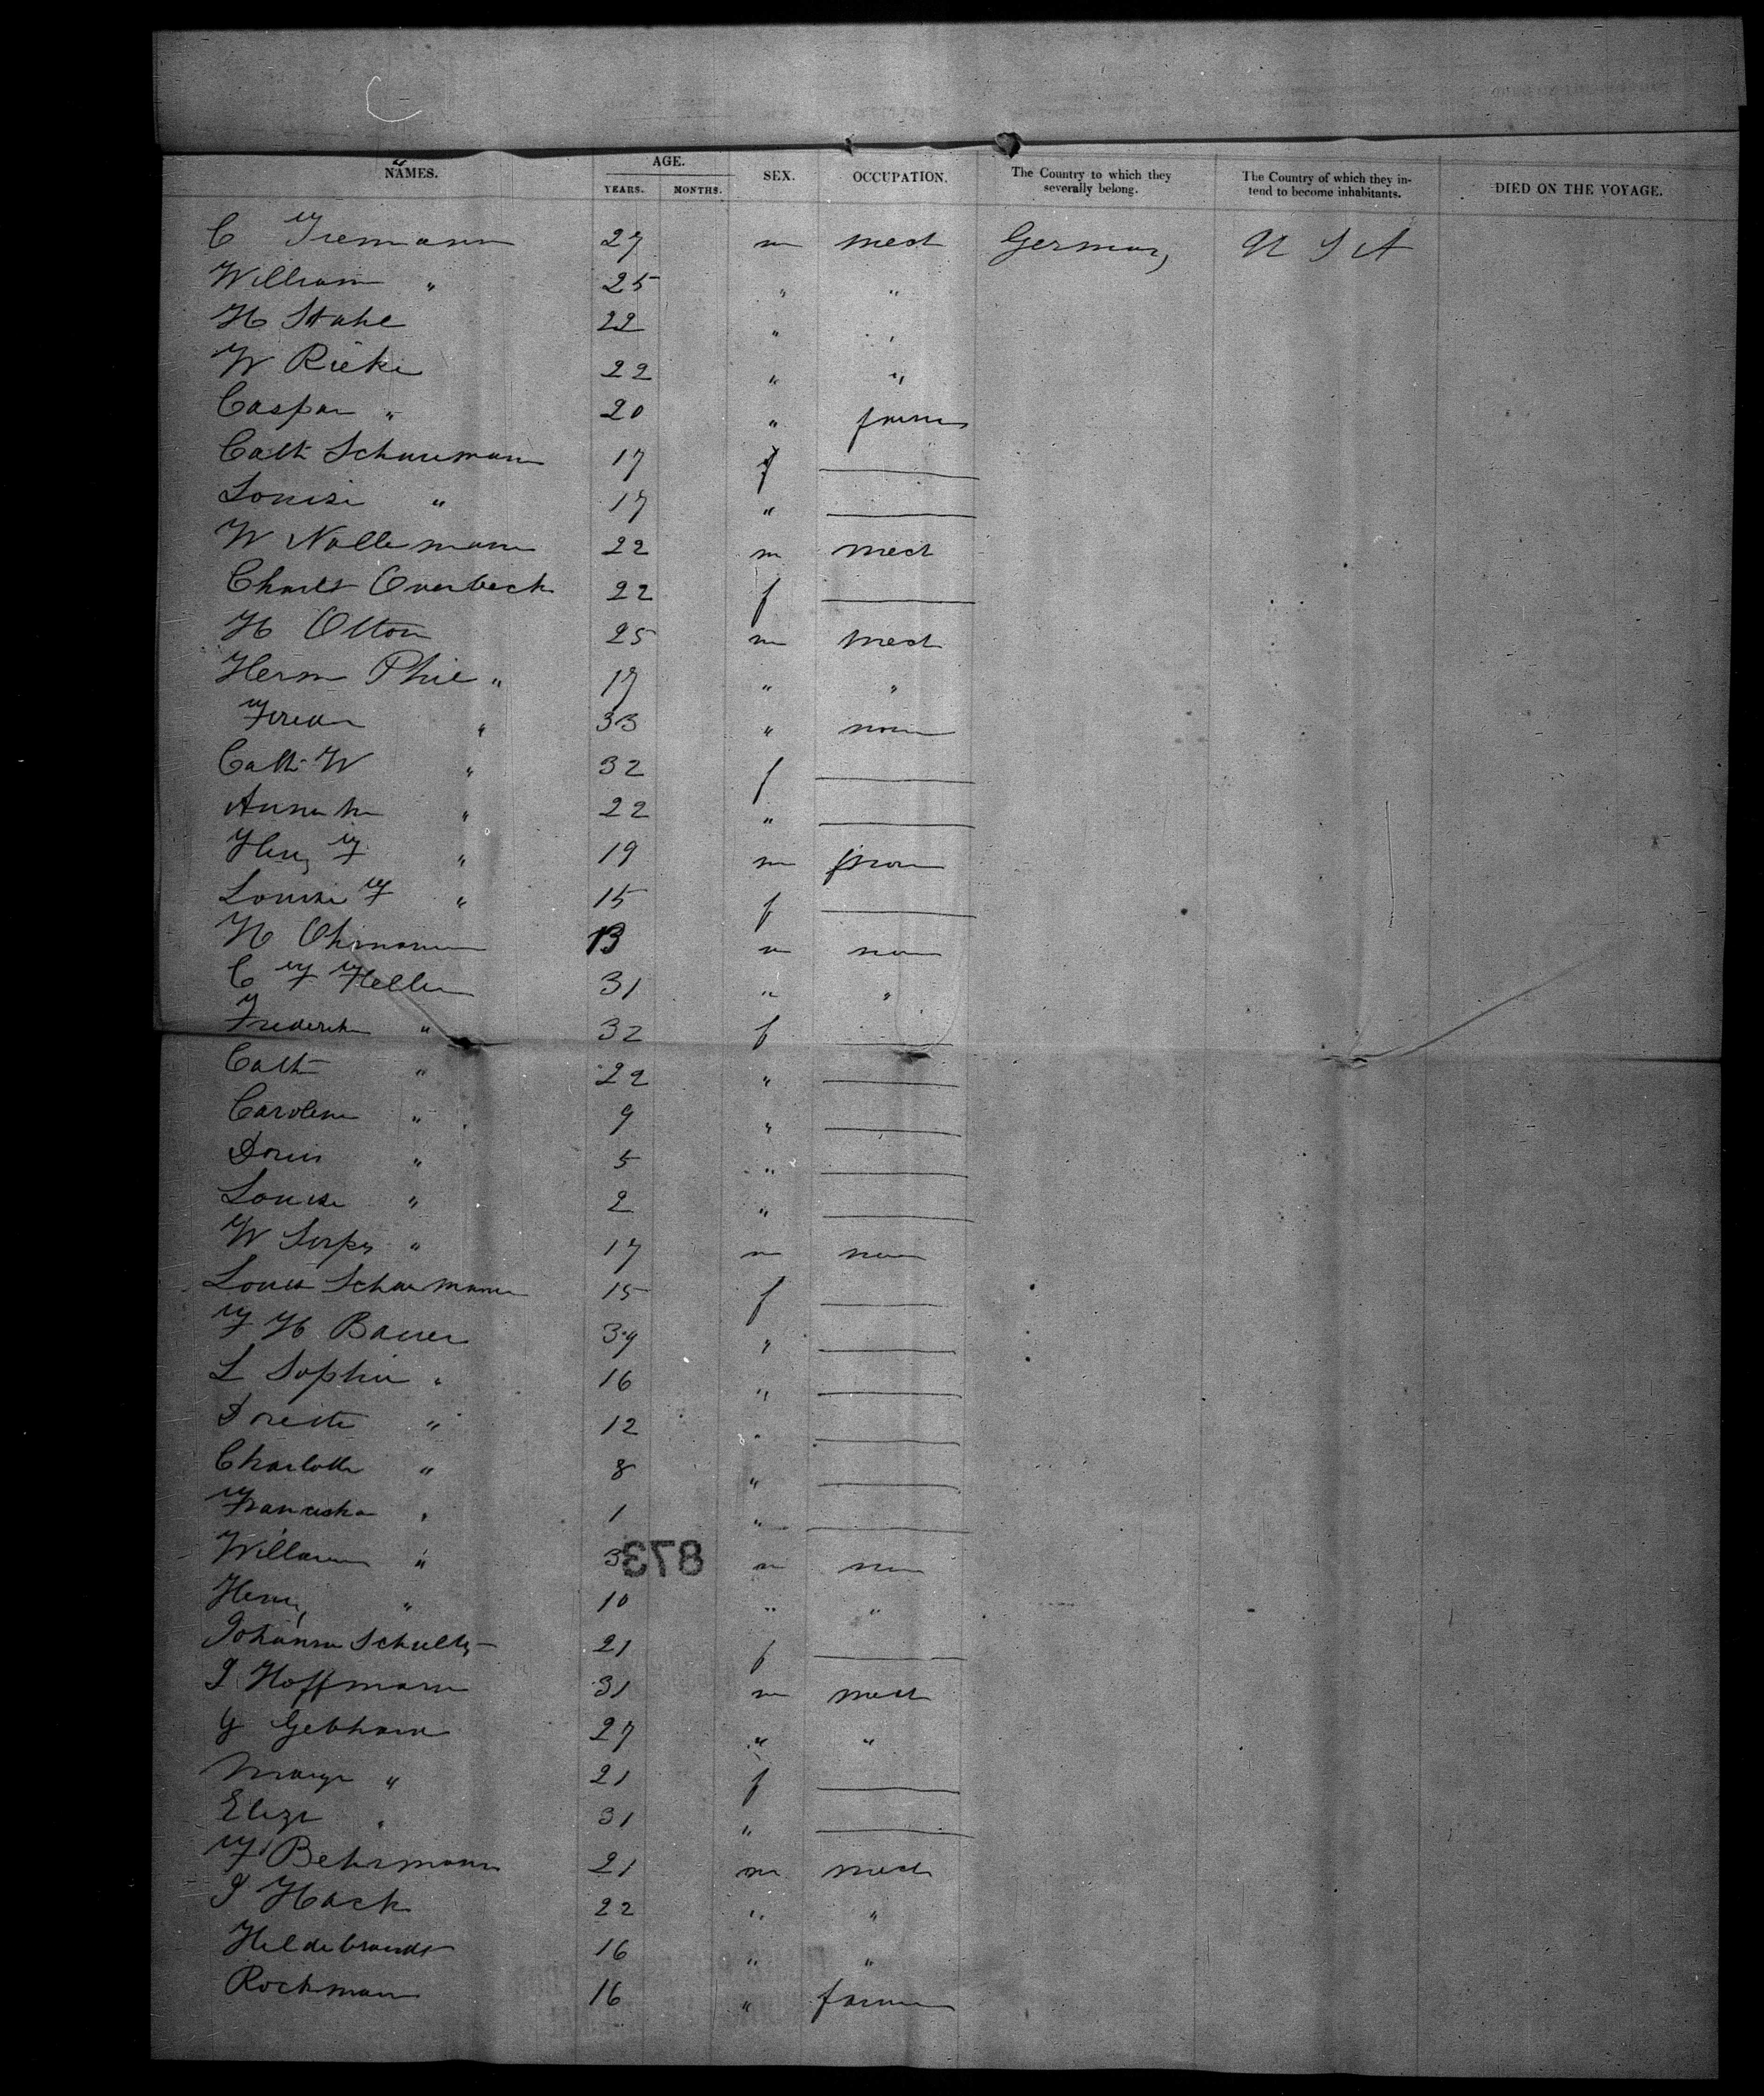 NAMES. AGE. SEX. OCCUPATION. The Country to which they severally belong. The Country of which they intend to become inhabitants. DIED ON THE VOYAGE.
YEARS. MONTHS.
C Tiemann 27 m mech Germany U S A
William " 25 " "
H Stahl 22 " "
W Rieke 22 " "
Caspar " 20 " farmer
Cath Schauemann 17 f
Louise " 17 "
W Nollemann 22 m mech
Charlt Overbeck 22 f
H Otton 25 m mech
Herm Phil " 17 " "
33 " none
Cath W " 32 f
Anna M " 22 "
Henry F " 19 m
Louise F " 15 f
H Ohmann 13 m none
C F Heller 31 " "
Frederik " 32 f
Cath " 22 "
Caroline " 9 "
Doris " 5 "
Louise " 2 "
W " 17 m none
Louise Schaumann 15 f
F H Bauer 39 "
L Sophie " 16 "
Dorette " 12 "
Charlotte " 8 "
Franziska " 1 "
William " 3 m none
873
Henry " 10 " "
Johanna Schultz 21 f
J Hoffmann 31 m mech
G Gebhard 27 " "
Margr " 21 f
Eliza " 31 "
F Behrmann 21 m mech
J Hack 22 " "
Hildebrandt 16 " "
Rochman 16 " farmer